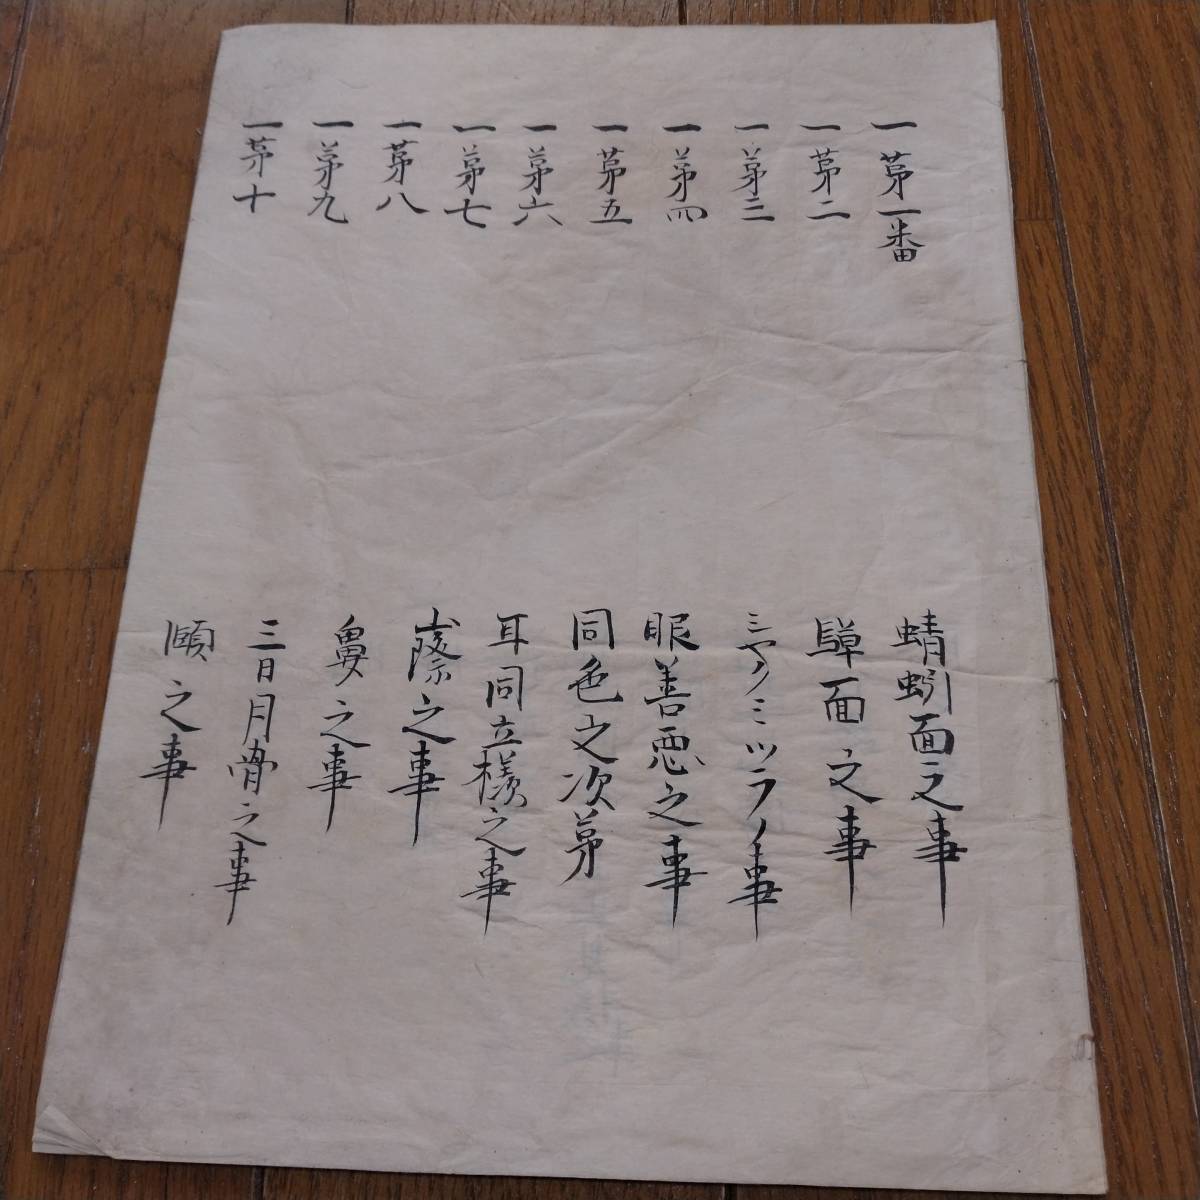 一第一番 蜻蜊面之事
一第二 驔面之事
一第三 ミヤクミツラノ事
一第四 眼善悪之事
一第五 同色之次第
一第六 耳同立様之事
一第七 之事
一第八 鼻之事
一第九 三日月骨之事
一第十 頤之事